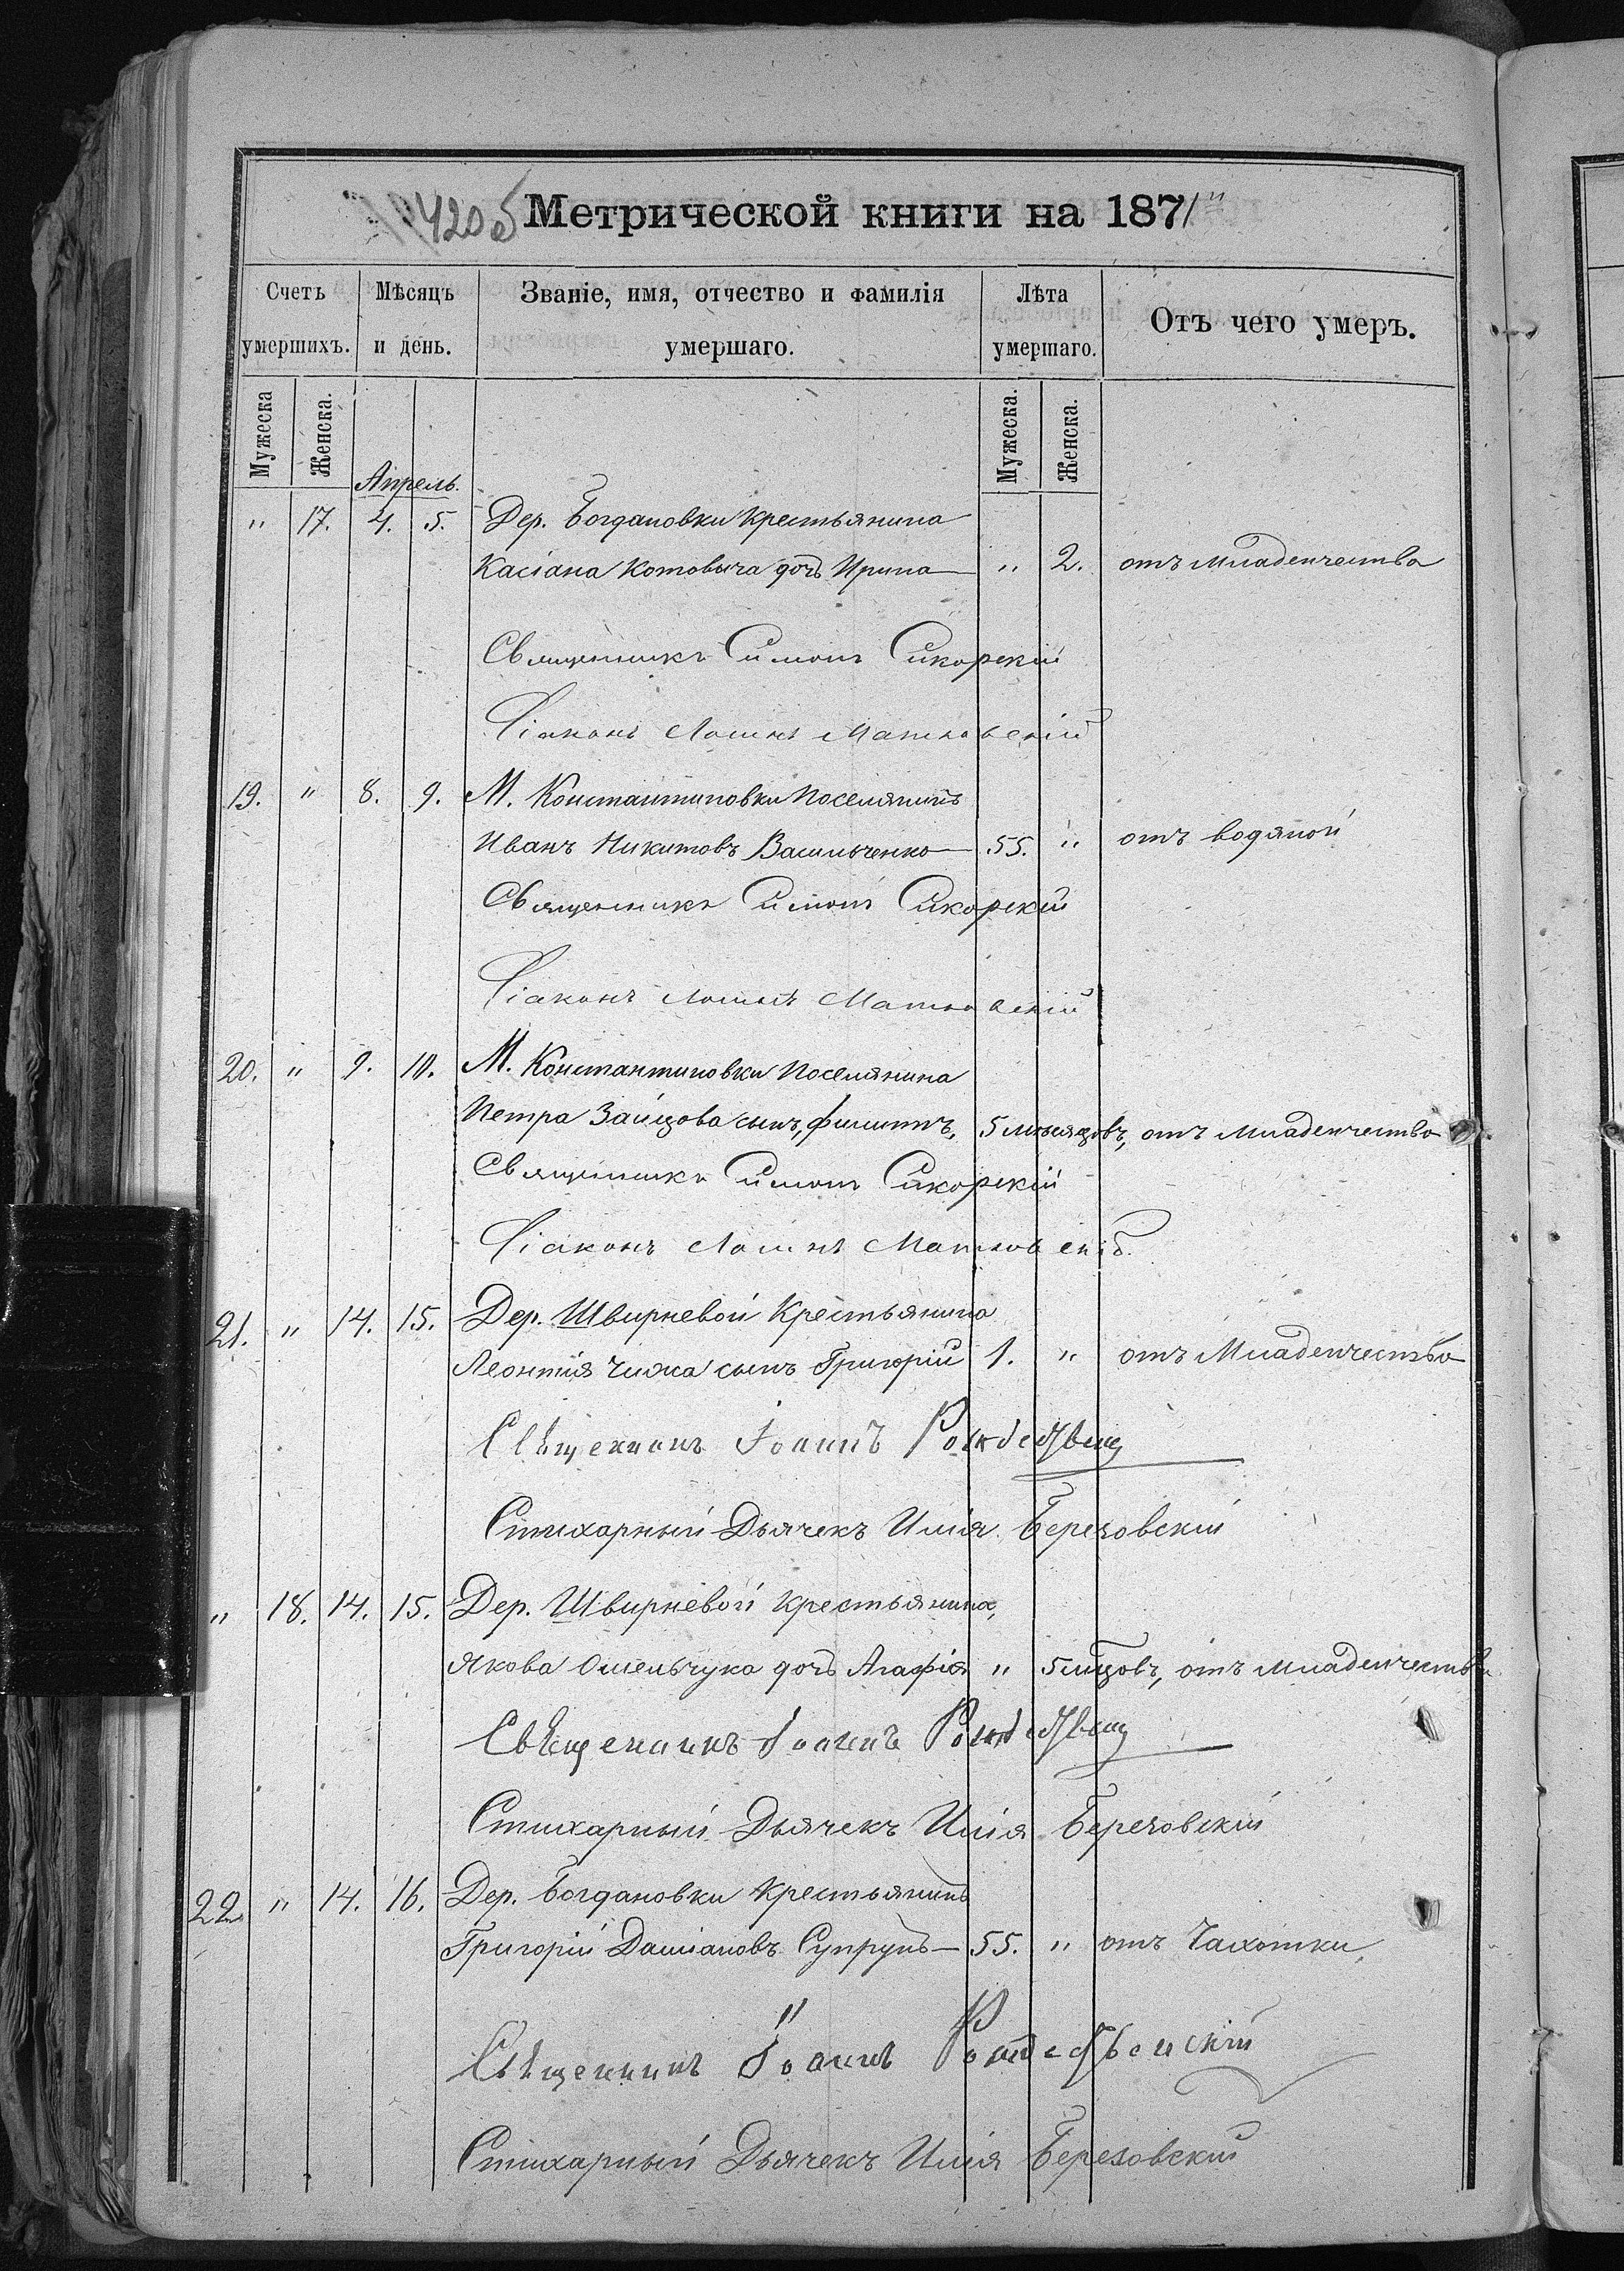 420об Метрической книги на 1871
Счетъ умершихъ. Мѣсяцъ и день. Званіе, имя, отчество и фамилія умершаго. Лѣта умершаго. Отъ чего умеръ.
Мужеска Женска. Мужеска. Женска.
Апрель.
" 17. 4. 5. Дер. Богдановки Крестьянина
Касіана Котовыча дочь Ирина " 2. отъ младенчества
Священникъ Симонъ Сикорскій
Діаконъ Матковскій
19. " 8. 9. М. Константиновки Поселянинъ
Иванъ Никитовъ Васильченко 55. " отъ водяной
Священникъ Симонъ Сикорскій
Діаконъ Матковскій
20. " 9. 10. М. Константиновки Поселянина
Петра Зайцова сынъ, Филиппъ, 5 мѣсяцовъ, отъ младенчества
Священникъ Симонъ Сикорскій
Діаконъ Матковскій
21. " 14. 15. Дер. Швирневой Крестьянина
Леонтія Чижа сынъ Григорій 1. " отъ Младенчества
Священникъ Іоаннъ
Стихарный Дьячекъ Илія Березовскій
" 18. 14. 15. Дер. Швирневой Крестьянина,
Якова Омельчука дочь Агафія " 5 мцовъ, отъ младенчества
Священникъ Іоаннъ
Стихарный Дьячекъ Илія Березовскій
22 " 14. 16. Дер. Богдановки Крестьянинъ
Григорій Даміановъ Супрунъ 55. " отъ Чахотки,
Священникъ Іоаннъ Рождественскій
Стихарный Дьячекъ Илія Березовскій